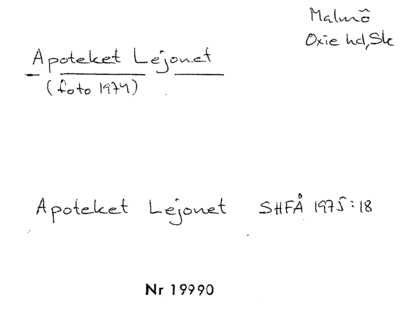 Malmö
Oxie hd, Sk
Apoteket Lejonet
(foto 1974)
Apoteket Lejonet SHFÅ 1975:18
Nr 19990